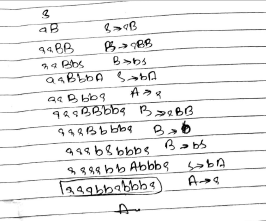 S
aB S→aB
aaBB B→aBB
aaBbs B→bs
aaBbbA S→bA
aaBbba A→a
aaaBBbba B→aBB
aaaBbbba B→b
aaabSbbba B→bS
aaaabbAbbba S→bA
aaabbabbba A→a